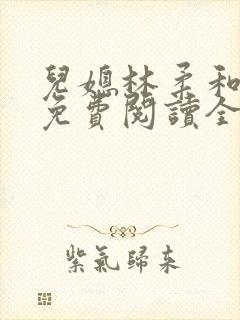 兒媳林柔和
免費閱讀全
紫氣歸来